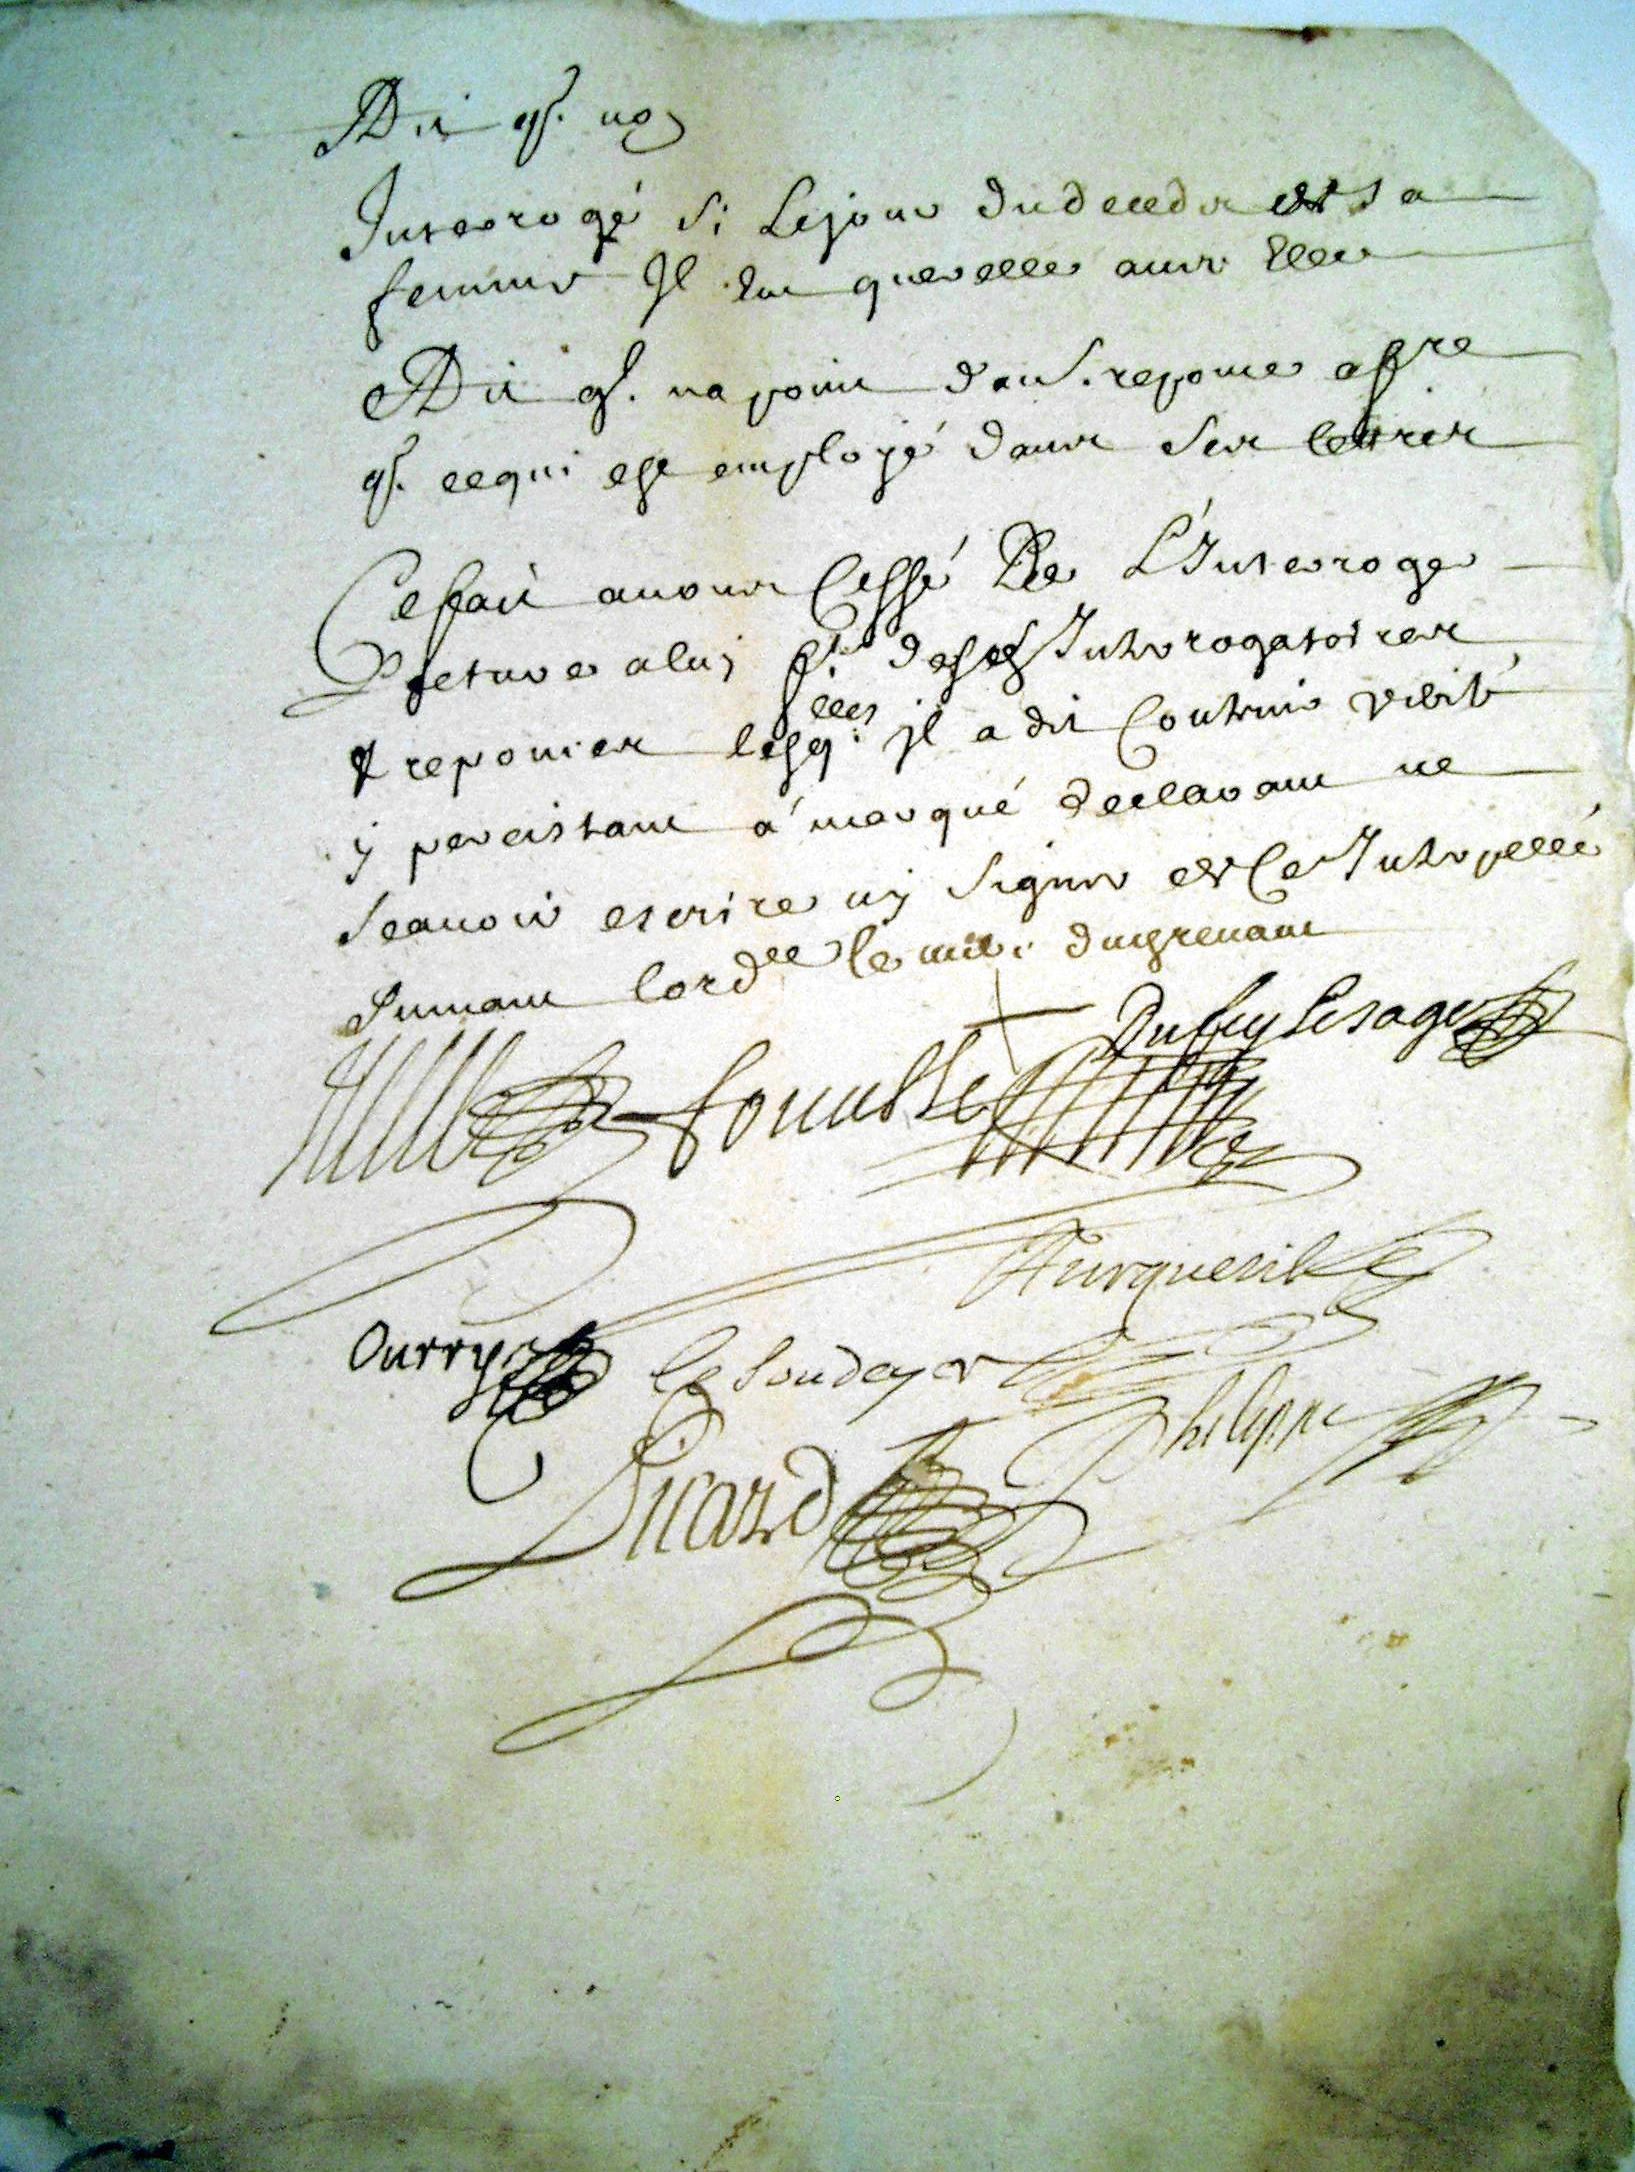 Dit q. non
Interrogé si Lejour dudeceds de sa
femme Il eut querelle avec Elle
Dit q. na point dau. reponce a fre
q. cequi est employé dans ses lettres
Cefait avons Cessé De L'Interoger
Lecture aluy fte deses Interrogatoires
& reponces lesqlles il a dit Contenir verité
y persistant a marqué declarant ne
scavoir escrire ny signer de Ce Interpellé
suivant lordce le mil. dugrenant
Dufay Lesage
Turquetil
Ourry
Le boudeyer
Philippe
Picard